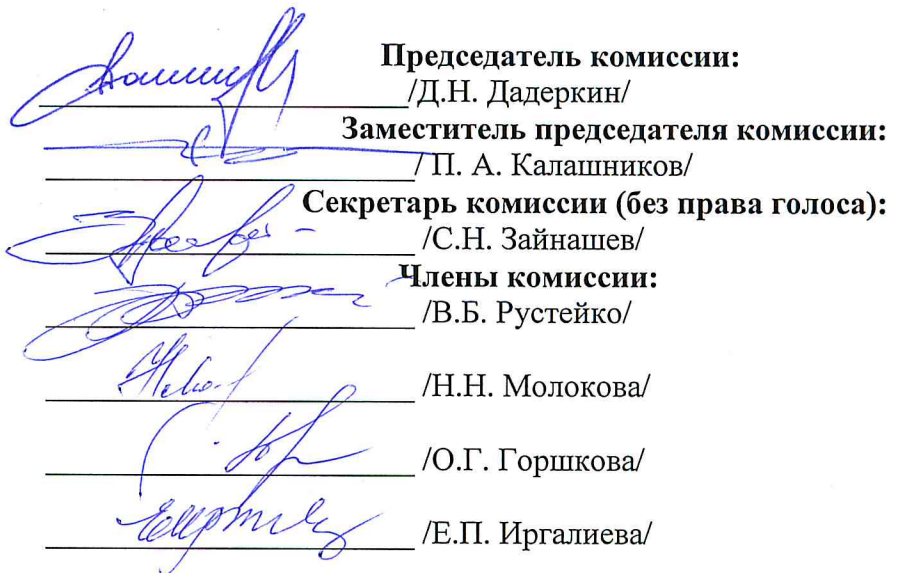 Председатель комиссии:
/Д.Н. Дадеркин/
Заместитель председателя комиссии:
/ П. А. Калашников/
Секретарь комиссии (без права голоса):
/С.Н. Зайнашев/
Члены комиссии:
/В.Б. Рустейко/
/Н.Н. Молокова/
/О.Г. Горшкова/
/Е.П. Иргалиева/